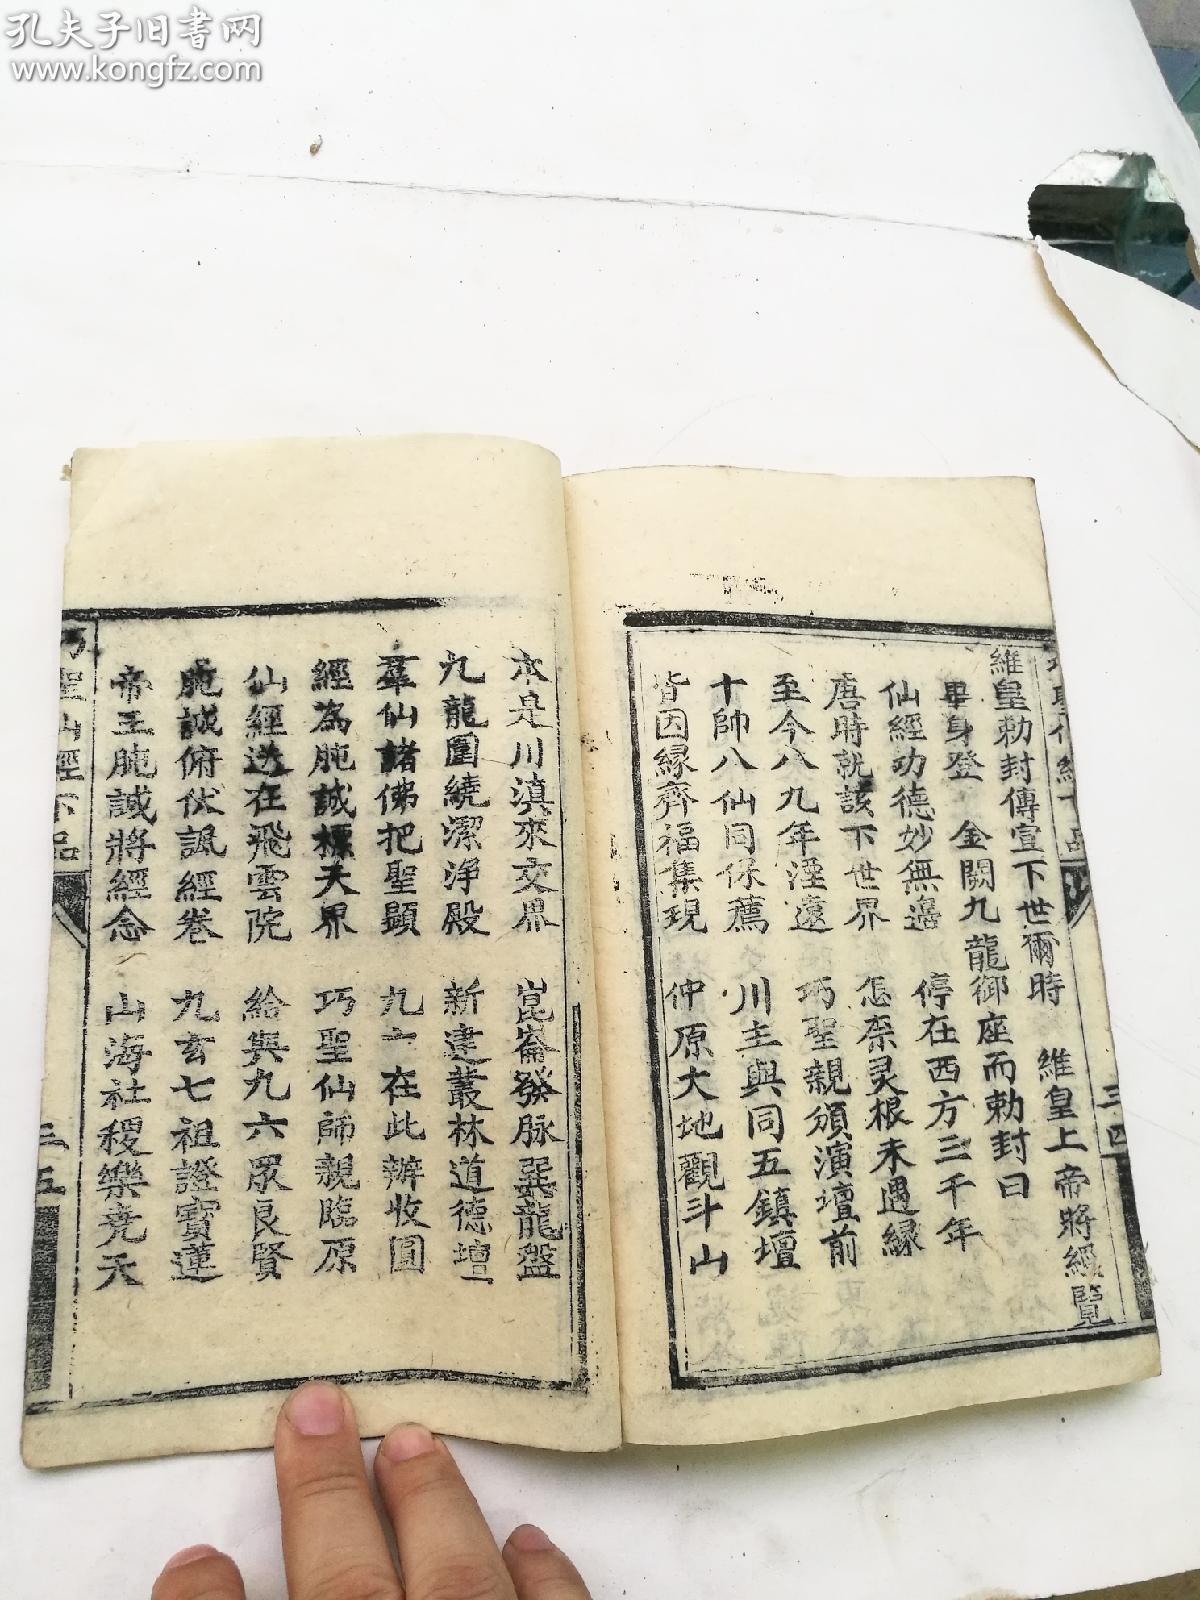 孔夫子旧书网
www.kongfz.com
三四
維皇勅封傳宣下世爾時　維皇上帝將經覽
畢身登　金闕九龍御座而勅封曰
仙經功德妙無邉　停在西方三千年
唐時就該下世界　怎奈灵根未遇緣
至今八九年湮遠　巧聖親頒演壇前
十帥八仙同保薦　川主與同五鎮壇
皆因緣齊福集現　仲原大地觀斗山
本是川滇來交界　崑崙發脉巽龍盤
九龍圍繞潔淨殿　新建叢林道德壇
羣仙諸佛把聖顯　九六在此辦收圓
經為肫誠標天界　巧聖仙師親臨原
仙經送在飛雲院　給與九六眾良賢
肫誠俯伏諷經卷　九玄七祖證寳蓮
帝王肫誠將經念　山海社稷樂堯天
巧聖仙經下品
三五